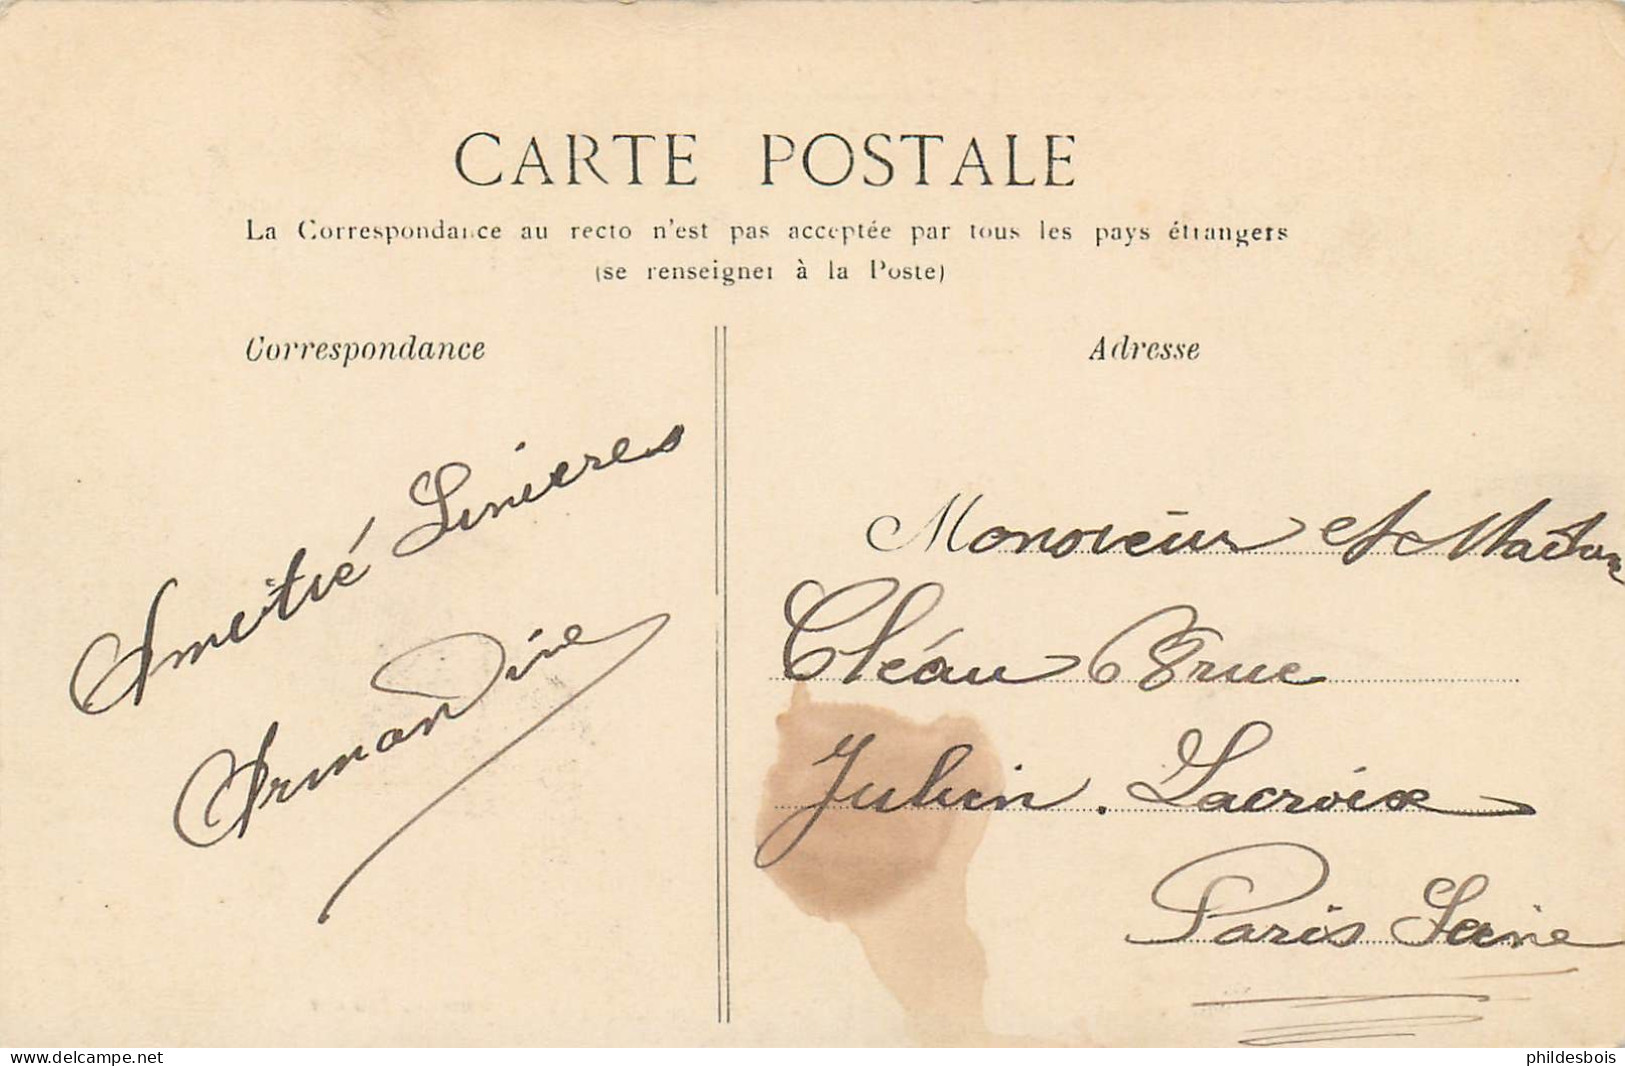 CARTE POSTALE
La Correspondance au recto n'est pas acceptée par tous les pays étrangers
(se renseigner à la Poste)
Correspondance
Adresse
Amitié Linières
Armandine
Monsieur et Madam
Cléau Brue
Julien. Lacroix
Paris Seine
phildesbois